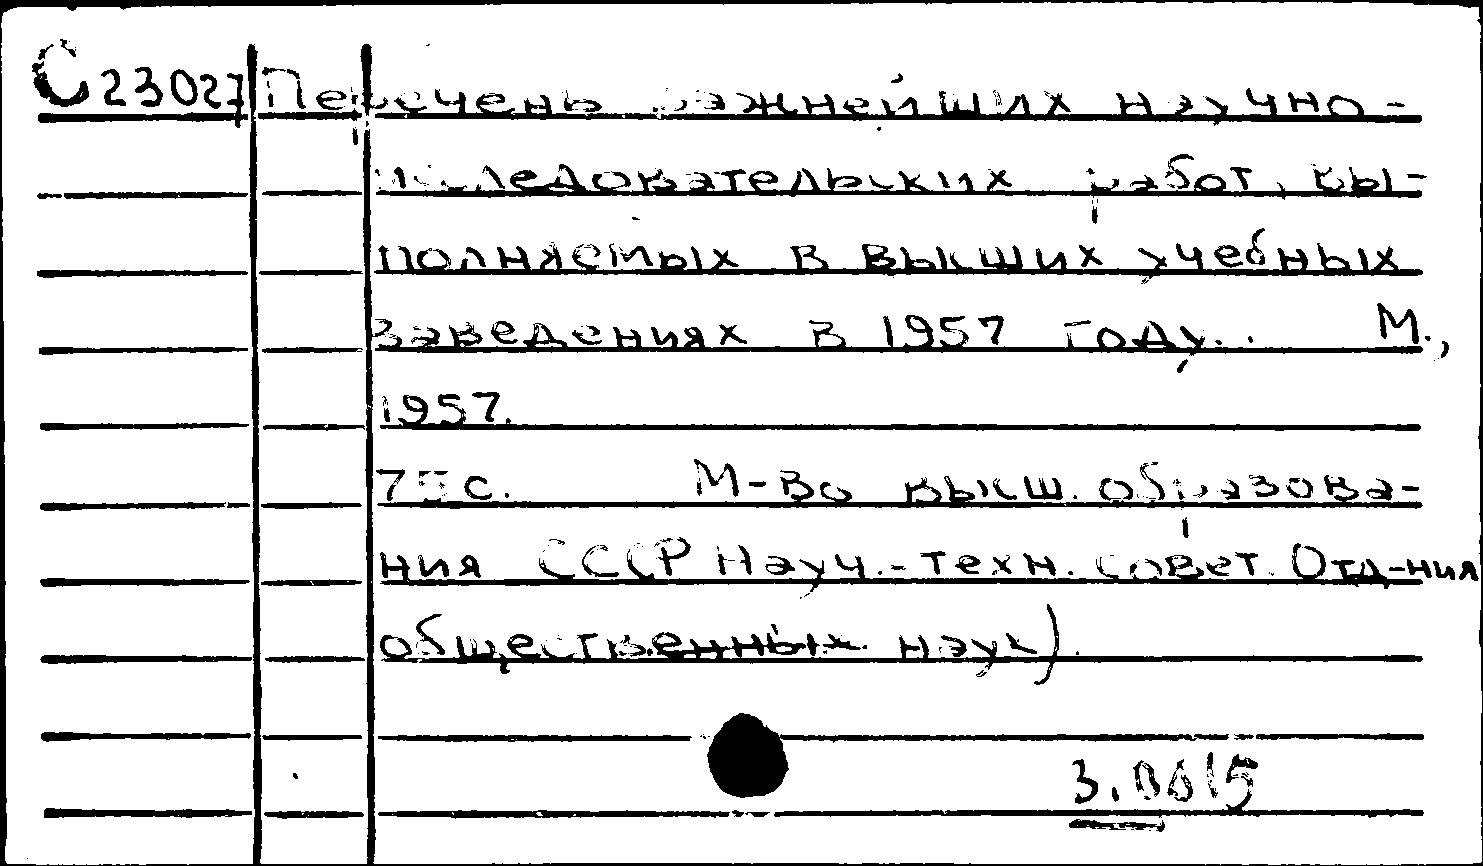 С23027 Перечень важнейших научно-
исследовательских работ, вы-
полняемых в высших учебных
заведениях в 1957 году.. М.,
1957.
75 с. М-во высш. образова-
ния СССР Науч.-техн. совет. Отд-ния
общественных наук)